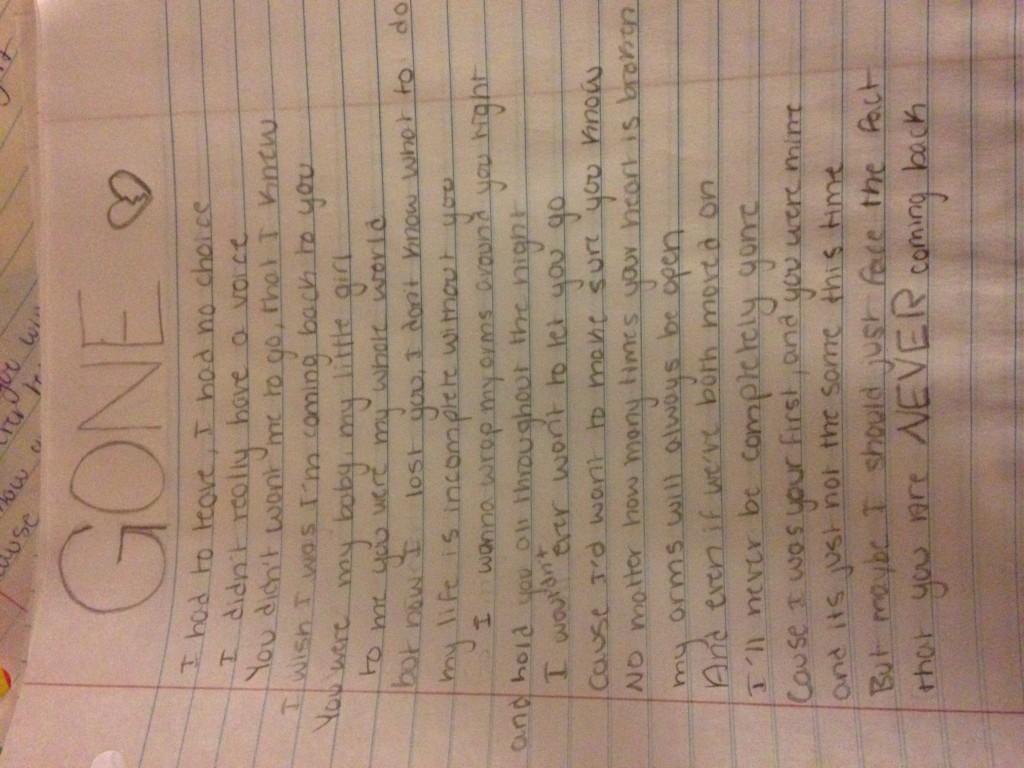 GONE
I had to leave, I had no choice
I didn't really have a voice
You didn't want me to go, that I knew
I wish I was I'm coming back to you
You were my baby, my little girl
to me you were my whole world
but now I lost you, I dont know what to do
my life is incomplete without you
I wanna wrap my arms around you tight
and hold you all throughout the night
I wouldn't ever want to let you go
cause I'd want to make sure you know
No matter how many times your heart is broken
my arms will always be open
And even if we've both moved on
I'll never be completely gone
Cause I was your first, and you were mine
and its just not the same this time
But maybe I should just face the fact
that you are NEVER coming back